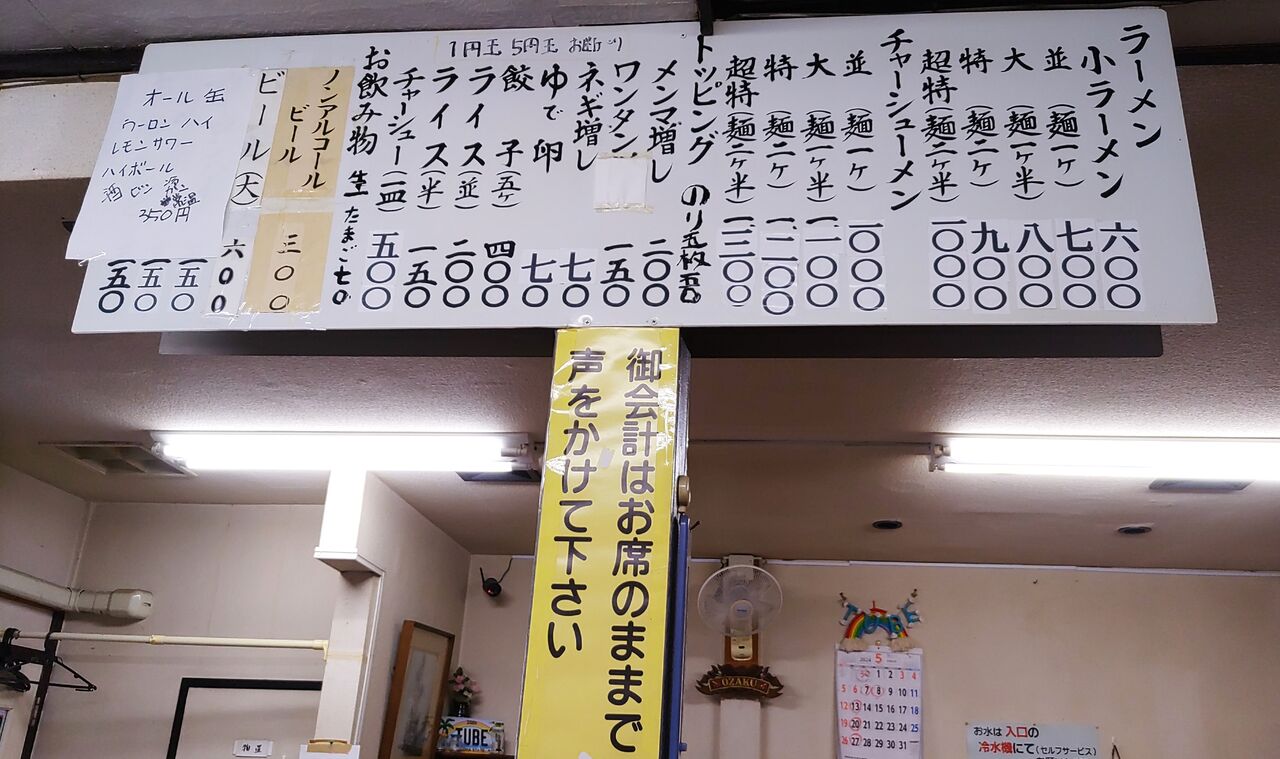 1円玉 5円玉 お断り
ラーメン
小ラーメン 六〇〇
並(麺一ヶ) 七〇〇
大(麺一ヶ半) 八〇〇
特(麺二ヶ) 九〇〇
超特(麺二ヶ半) 一〇〇〇
チャーシューメン
並(麺一ヶ) 一〇〇〇
大(麺一ヶ半) 一一〇〇
特(麺二ヶ) 一二〇〇
超特(麺二ヶ半) 一三〇〇
トッピング のり五枚
メンマ増し 二〇〇
ワンタン 一五〇
ネギ増し 七〇
ゆで卵 七〇
餃子(五ヶ) 四〇〇
ライス(並) 二〇〇
ライス(半) 一五〇
チャーシュー(一皿) 五〇〇
お飲み物 生たまご 七〇
ノンアルコール
ビール 三〇〇
ビール(大) 六〇〇
一五〇
一五〇
一五〇
オール缶
ウーロンハイ
レモンサワー
ハイボール
酒ビン
350円
御会計はお席のままで
声をかけて下さい
OZAKU
TUBE
TUBE
2024 5
1 2 3 4
5 6 7 8 9 10 11
12 13 14 15 16 17 18
19 20 21 22 23 24 25
26 27 28 29 30 31
お水は入口の
冷水機にて(セルフサービス)